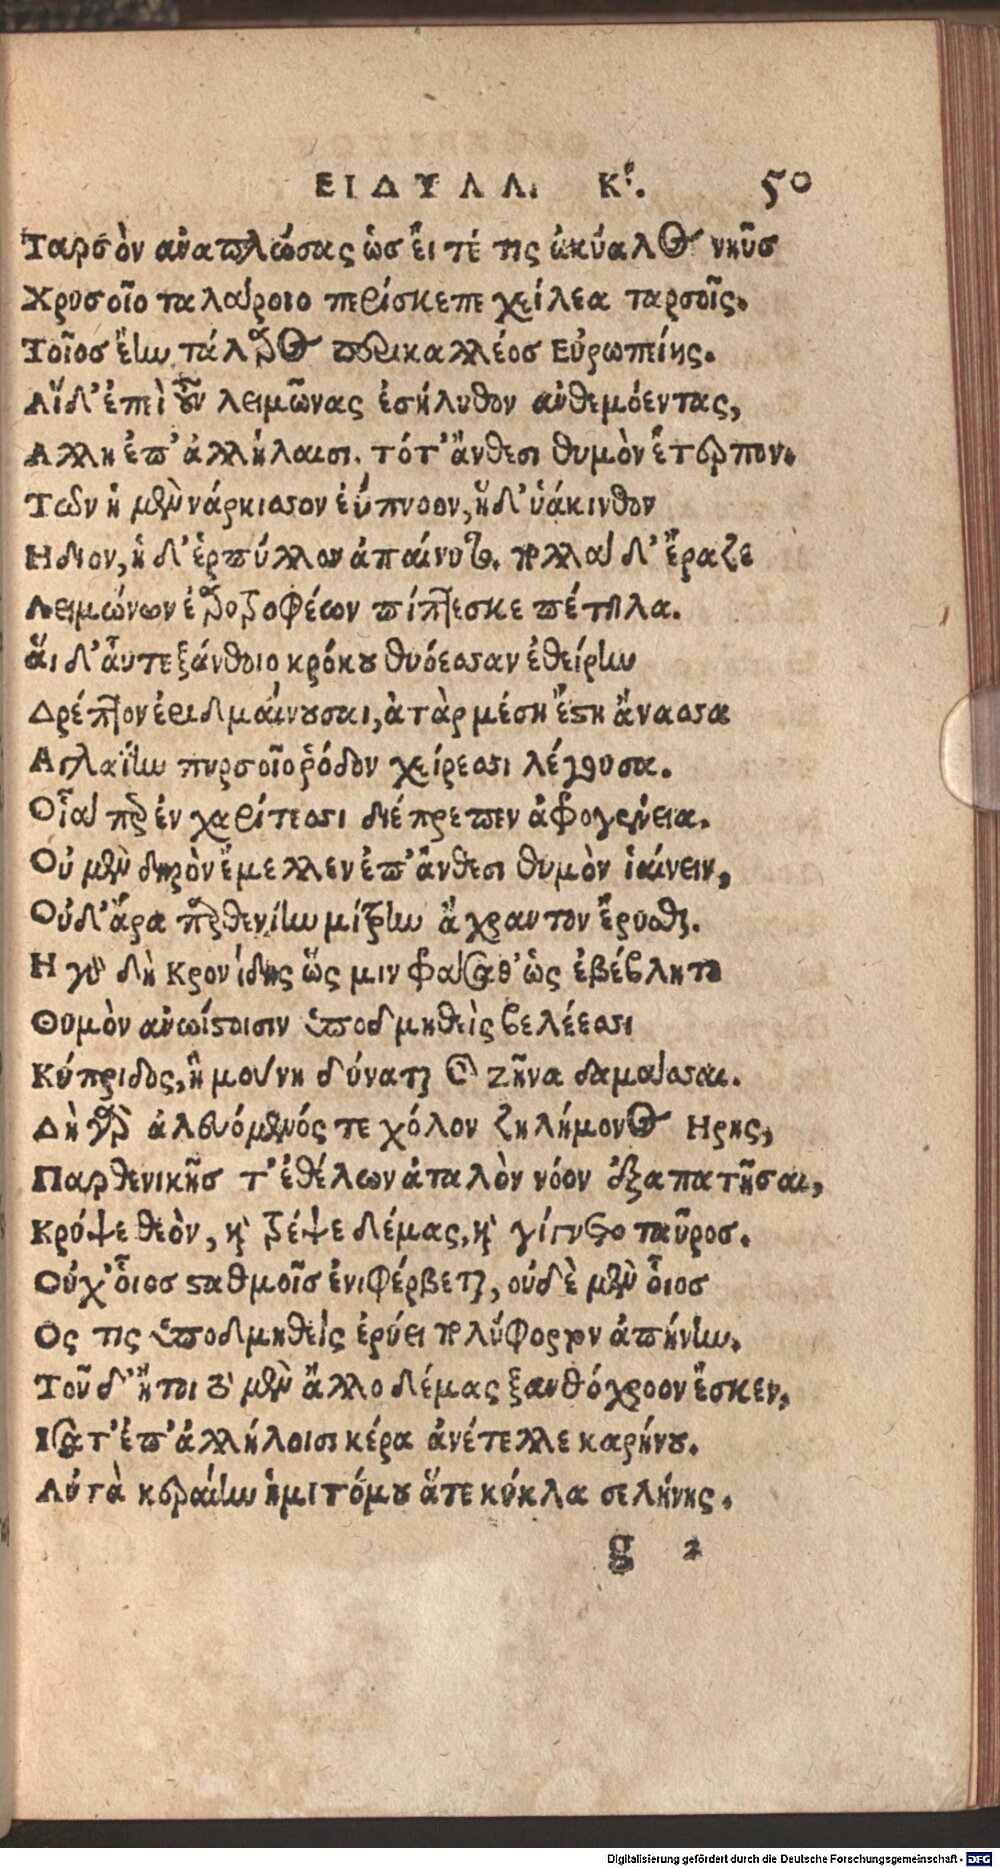 ΕΙΔΥΛΛ. Κ'. 50
Ταρσὸν ἀναπλώσας ὡσ εἴ τέ τις ὠκύαλος νηῦσ
Χρυσοῖο ταλαίροιο περίσκεπε χείλεα ταρσοῖς.
Τοῖοσ ἔην τάλαρος περικαλλέοσ Εὐρωπείης.
Αἵδ' ἐπεὶ οὖν λειμῶνας ἐσήλυθον ἀνθεμόεντας,
Αλλη ἐπ' ἀλλήλαισι. τότ' ἄνθεσι θυμὸν ἔτερπον.
Τῶν ἡ μὲν νάρκισσον ἐΰπνοον, ἥ δ' ὑάκινθον
Ηδ ιον, ἡ δ' ἑρπύλλον ἀπαίνυτο. πολλαὶ δ' ἔραζε
Λειμώνων ἐαροτροφέων πίπτεσκε πέτηλα.
ἅι δ' αὖτε ξάνθοιο κρόκου θυόεσσαν ἐθείρην
Δρέπτον ἐριδμαίνουσαι, ἀτὰρ μέση ἔστη ἄνασσα
Αγλαΐην πυρσοῖο ῥόδον χείρεσσι λέγουσα.
Οἷα περ ἐν χαρίτεσσι διέπρεπεν ἀφρογένεια.
Οὐ μὲν δηρὸν ἔμελλεν ἐπ' ἄνθεσι θυμὸν ἰαίνειν,
Οὐδ' ἄρα παρθενίην μίτρην ἄχραντον ἔρυσθαι.
Η γὰρ δὴ Κρονίδης ὥς μιν φράσαθ' ὡς ἐβέβλητο
Θυμὸν ἀνωΐστοισιν ὑποδμηθεὶς βελέεσσι
Κύπριδος, ἣ μούνη δύναται καὶ ζῆνα δαμάσσαι.
Δὴ γὰρ ἀλευόμενός τε χόλον ζηλήμονος Ηρης,
Παρθενικῆσ τ' ἐθέλων ἀταλὸν νόον ἐξαπατῆσαι,
Κρύψε θεὸν, καὶ τρέψε δέμας, καὶ γίγνετο ταῦροσ.
Οὐχ' οἷοσ σταθμοῖσ ἐνιφέρβεται, οὐδὲ μὲν οἷοσ
Ος τις ὑποδμηθεὶς ἐρύει πολύφορτον ἀπήνην.
Τοῦ δ' ἤτοι τὸ μὲν ἄλλο δέμας ξανθόχροον ἔσκεν,
Ισατ' ἐπ' ἀλλήλοισι κέρα ἀνέτελλε καρήνου.
Αὐτὰ κεραίην ἡμιτόμου ἅτε κύκλα σελήνης.
g 2
Digitalisierung gefördert durch die Deutsche Forschungsgemeinschaft - DFG